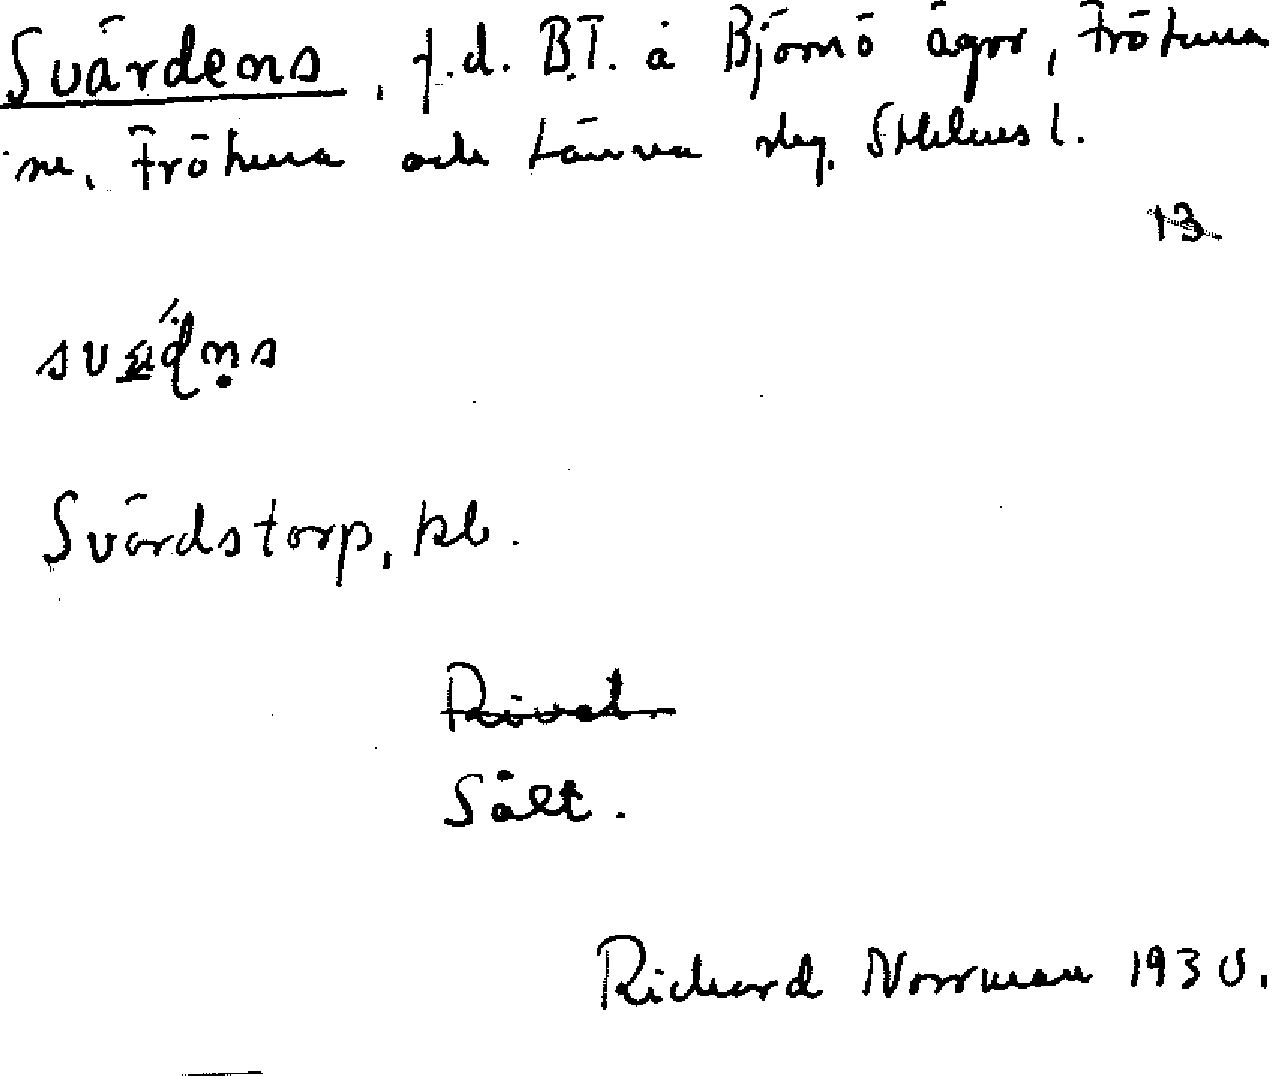 Svärdens, f.d. B.T. å Björnö ägor, Frötuna
sn, Frötuna och Länna slg. Sthlms l.
13
Svärdstorp, kb.
Rival
Sält.
Richard Norrman 1930.